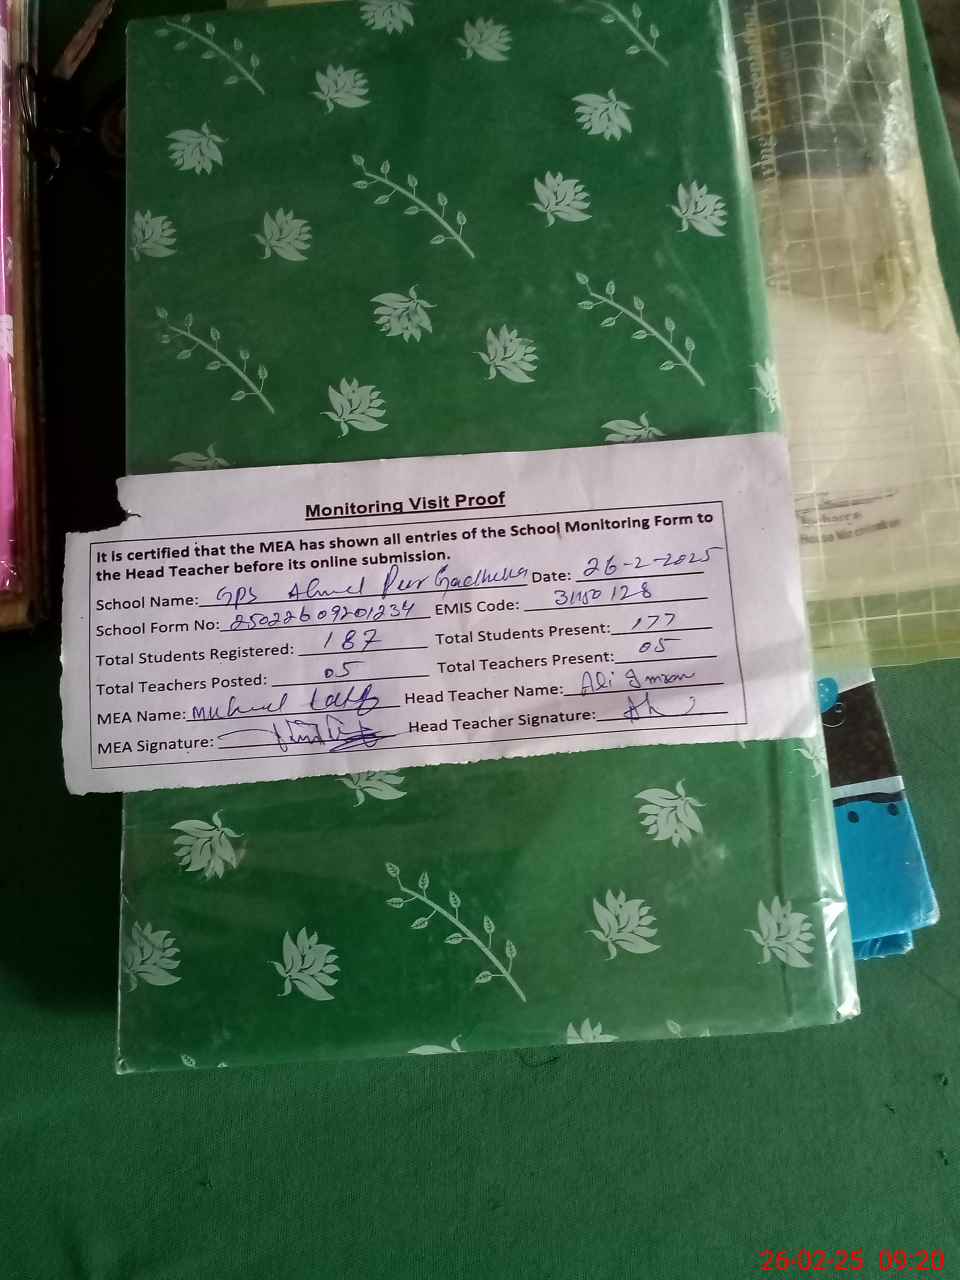 Monitoring Visit Proof
It is certified that the MEA has shown all entries of the School Monitoring Form to
the Head Teacher before its online submission.
School Name: GPS Ahmed Date: 26-2-2025
School Form No: 25022609201234 EMIS Code: 31150128
Total Students Registered: 187 Total Students Present: 177
Total Teachers Posted: 05 Total Teachers Present: 05
MEA Name: Head Teacher Name: Ali Imran
MEA Signature: Head Teacher Signature:
26-02-25 09:20